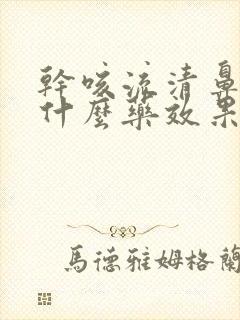 幹咳流清鼻
什麼藥效果
馬德雅姆格蘭